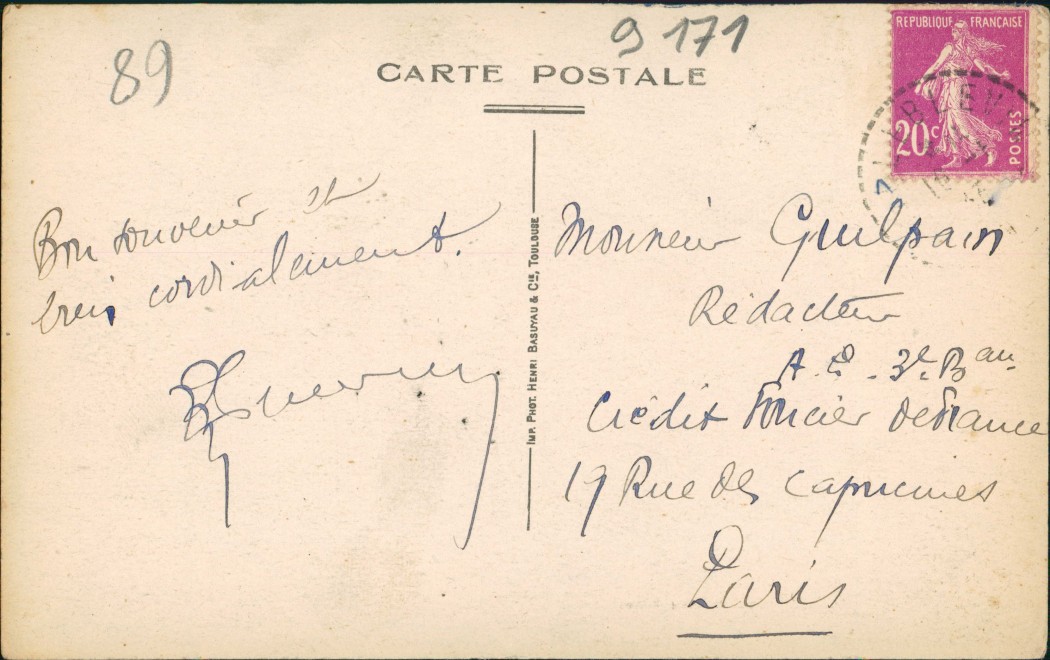 89
9 171
CARTE POSTALE
REPUBLIQUE FRANÇAISE
20c
POSTES
Bon souvenir et
très cordialement.
IMP. PHOT. HENRI BASUYAU & CIE, TOULOUSE
Monsieur Guilpain
Rédacteur
A. E. 3e Bau
Crédit Foncier de France
19 Rue des Capucines
Paris